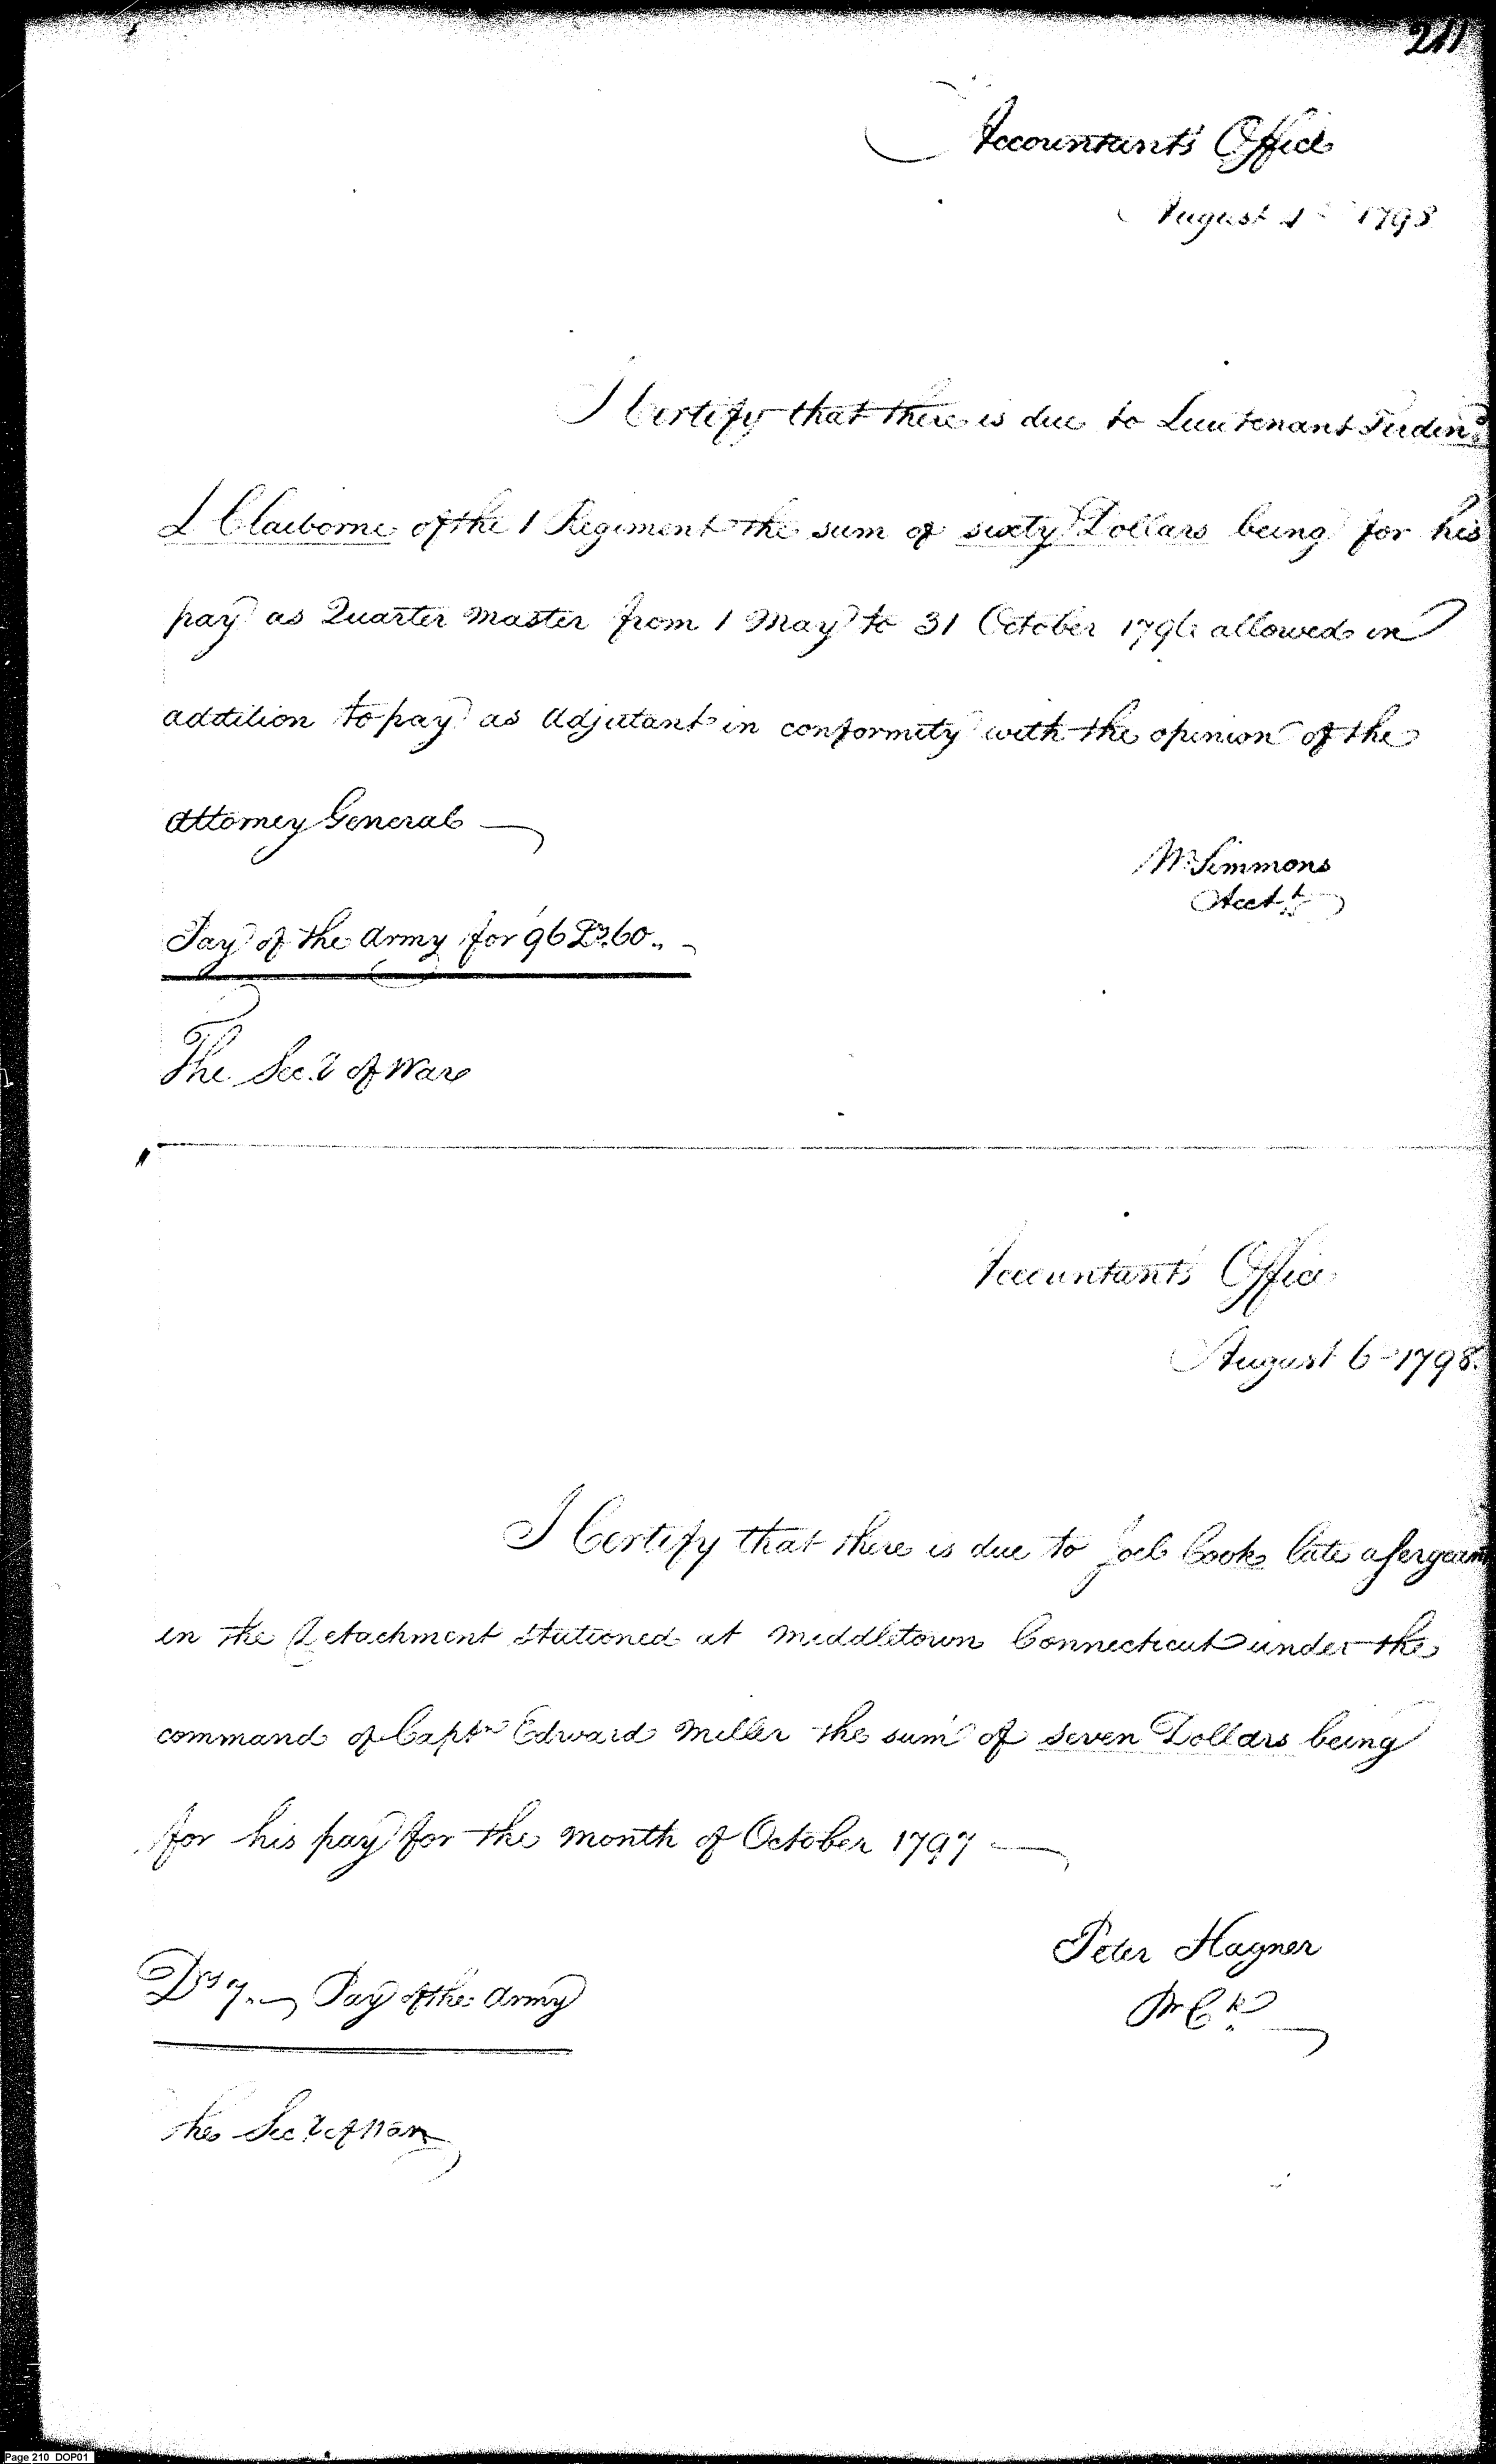 211
Accountant's Office
August 1st 1798
I Certify that there is due to Lieutenant Ferdind
L Claiborne of the 1 Regiment the sum of sixty Dollars being for his
pay as Quarter Master from 1 May to 31 October 1796 allowed in
addition to pay as Adjutant in conformity with the opinion of the
Attorney General
Wm Simmons
Acctt
Pay of the Army for '96 Ds. 60..
The Secy of War
Accountant's Office
August 6 - 1798.
I Certify that there is due to Joel Cook late a sergeant
in the Detachment stationed at Middletown Connecticut under the
command of Captn Edward Miller the sum of seven Dollars being
for his pay for the month of October 1797
Peter Hagner
Pr Ck
Ds 7.. Pay of the Army
The Secy of War
Page 210 DOP01